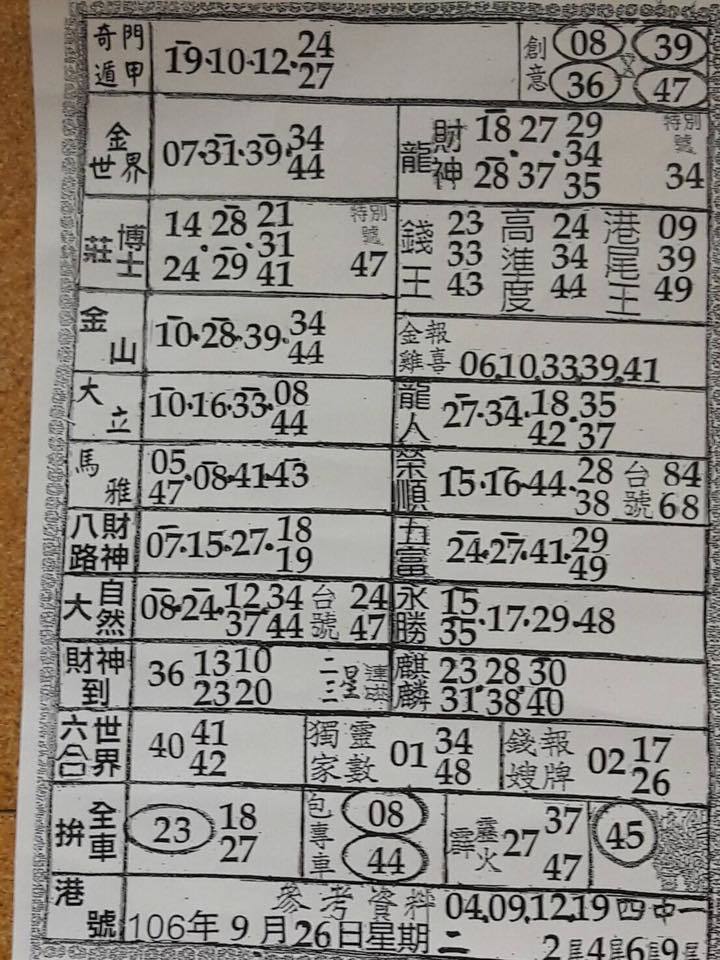 奇門遁甲 19·10·12·24 27 創意 08 39 36 47
金世界 07·31·39·34 44
龍財神 18 27 29 28·37·34 35 特別號 34
莊博士 14 28 21 24·29·31 41 特別號 47
錢王 23 33 43 高進度 24 34 44 港尾王 09 39 49
金山 10·28·39·34 44
金雞報喜 06,10,33,39,41
大立 10·16·33·08 44
龍人 27·34·18·35 42 37
馬雅 05 47·08·41·43
榮順 15·16·44·28 38 台號 84 68
八路財神 07·15·27·18 19
五富 24·27·41·29 49
大自然 08·24·12·34 37 44 台號 24 47
永勝 15 35·17·29·48
財神到 36 13 10 23 20 二三星連碰
麒麟 23 28 30 31·38·40
六合世界 40 41 42
獨家靈數 01 34 48
錢嫂報牌 02 17 26
拚全車 23 18 27
包專車 08 44
霹靂火 27 37 47
45
港號 參考資料 04,09,12,19 四中一
106年9月26日星期二 2尾4尾6尾9尾